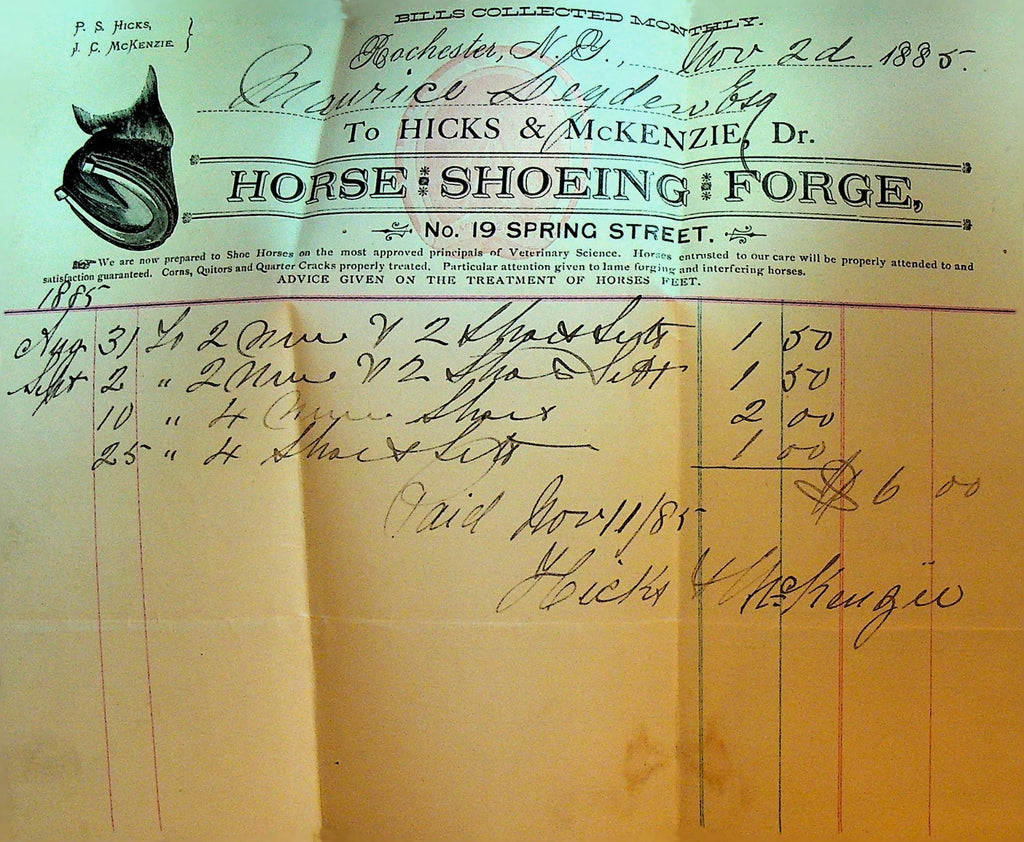 BILLS COLLECTED MONTHLY.
P. S. HICKS,
J. C. McKENZIE.
Rochester, N. Y., Nov 2d 1885.
Maurice Leyden Esq
To HICKS & McKENZIE, Dr.
HORSE SHOEING FORGE,
No. 19 SPRING STREET.
We are now prepared to Shoe Horses on the most approved principals of Veterinary Science. Horses entrusted to our care will be properly attended to and
satisfaction guaranteed. Corns, Quitors and Quarter Cracks properly treated. Particular attention given to lame forging and interfering horses.
ADVICE GIVEN ON THE TREATMENT OF HORSES FEET.
1885
Aug 31 To 2 New & 2 Shoes Sett 1 50
Sept 2 " 2 New & 2 Shoes Sett 1 50
10 " 4 New Shoes 2 00
25 " 4 Shoes Sett 1 00
$ 6 00
Paid Nov 11/85
Hicks & McKenzie